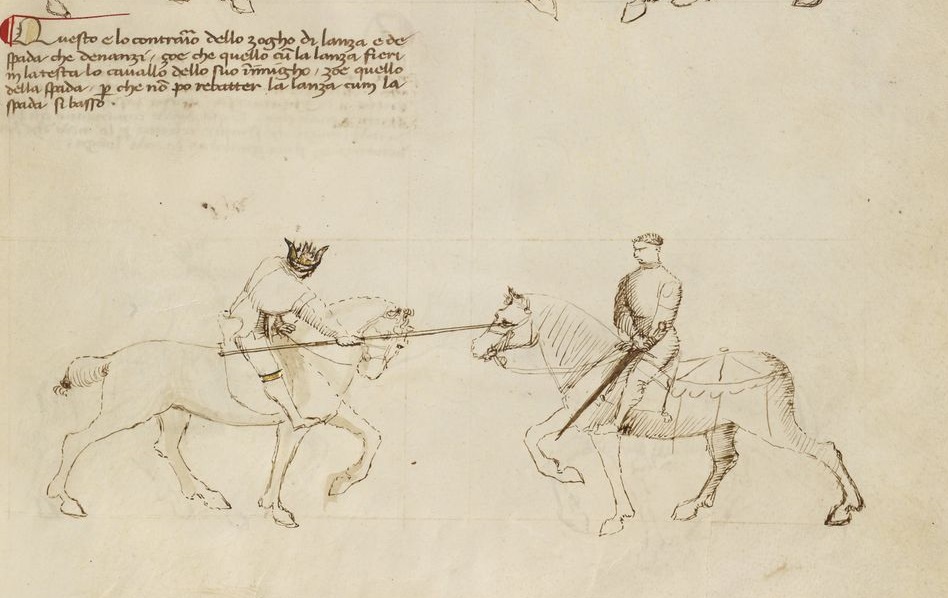 Questo e lo contraīo dello zogho di lanza e de
spada che denanzi / zoe che quello cū la lanza fieri
in la testa lo cavallo dello suo inimigho / zoe quello
della spada / p̄ che nō po rebatter la lanza cum la
spada si basso .